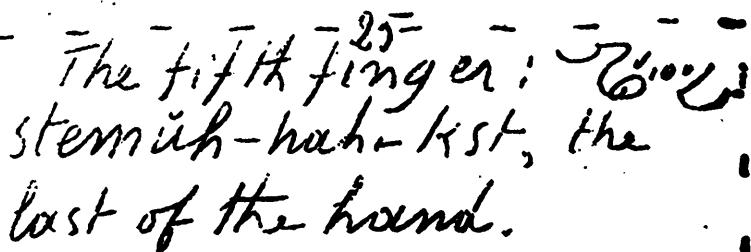 25
The fifth finger:
stemŭh-hah-kst, the
last of the hand.